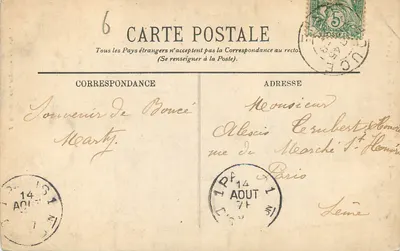 6
CARTE POSTALE
Tous les Pays étrangers n'acceptent pas la Correspondance au recto
(Se renseigner à la Poste).
CORRESPONDANCE
ADRESSE
Souvenir de Boucé
Marty
Monsieur
Alexis Lembert
rue de Marché St Honoré
Paris
Seine
14
AOUT
14
AOUT
5